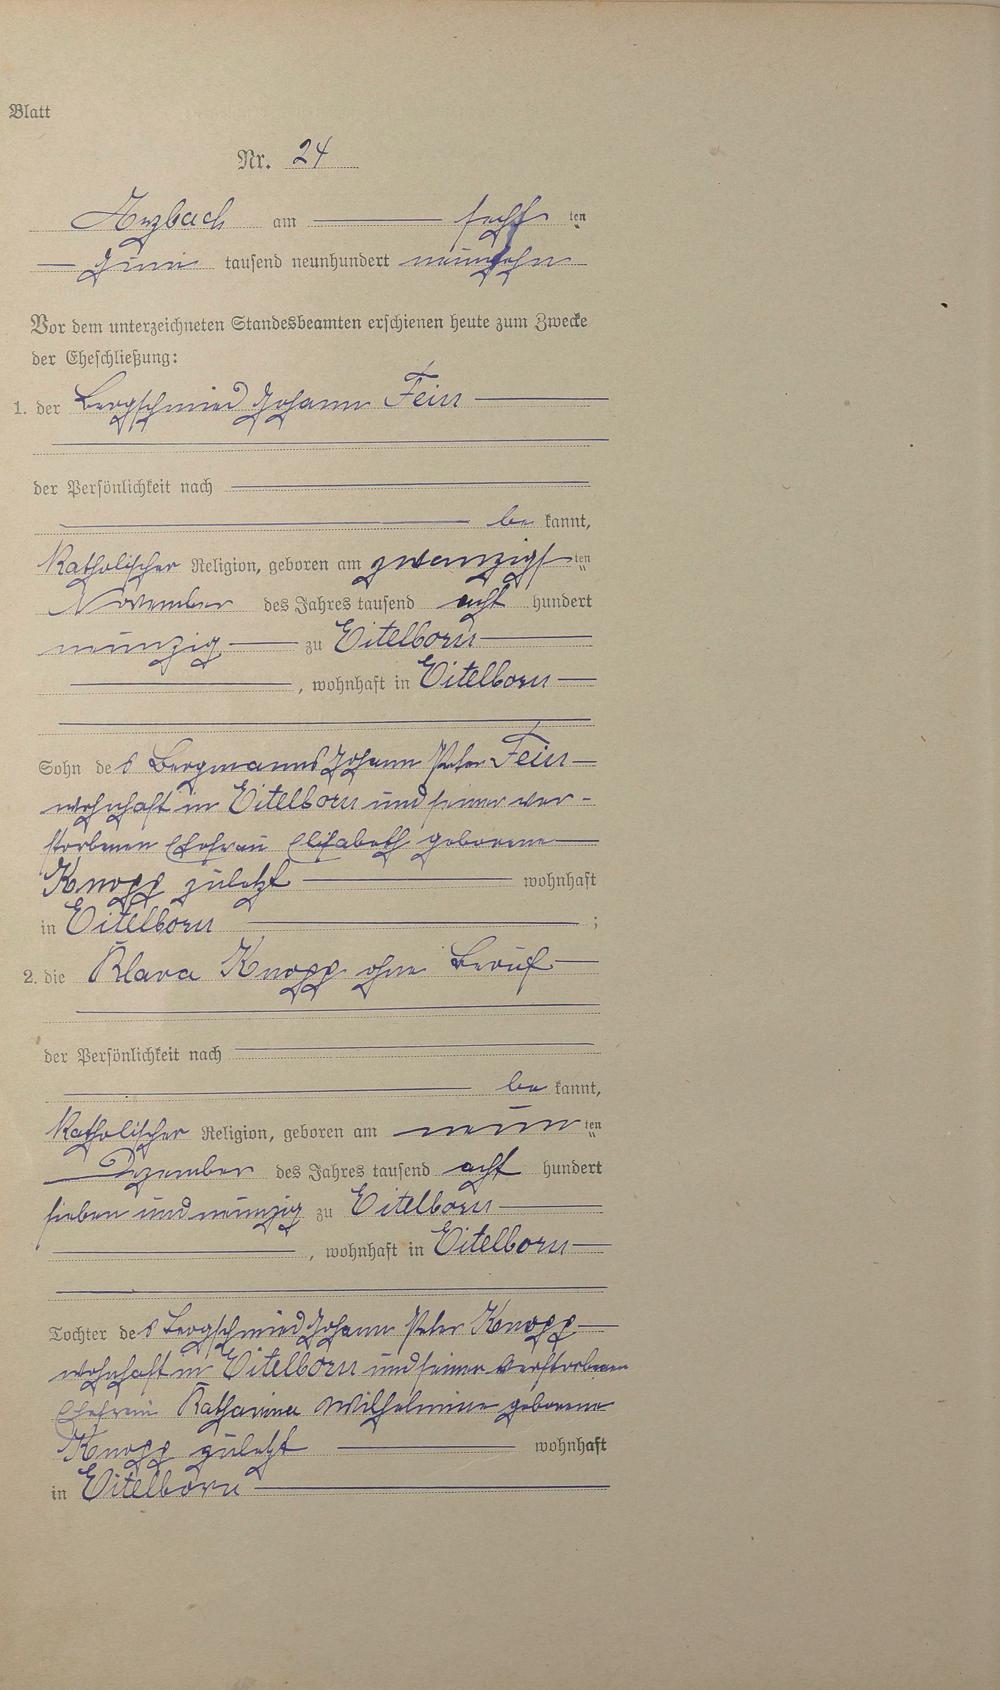 Blatt
Nr. 24
Arzbach am sechsten
Juni tausend neunhundert neunzehn
Vor dem unterzeichneten Standesbeamten erschienen heute zum Zwecke
der Eheschließung:
1. der Bergschmied Johann Fein
der Persönlichkeit nach
be kannt,
Katholischer Religion, geboren am zwanzigsten
November des Jahres tausend acht hundert
neunzig zu Eitelborn
, wohnhaft in Eitelborn
Sohn des Bergmanns Johann Peter Fein
wohnhaft in Eitelborn und seiner ver-
storbenen Ehefrau Elisabeth geborene
Knopp zuletzt wohnhaft
in Eitelborn ;
2. die Klara Knopp ohne Beruf
der Persönlichkeit nach
be kannt,
Katholischer Religion, geboren am neunten
Dezember des Jahres tausend acht hundert
sieben und neunzig zu Eitelborn
, wohnhaft in Eitelborn
Tochter des Bergschmied Johann Peter Knopp
wohnhaft in Eitelborn und seiner verstorbenen
Ehefrau Katharina Wilhelmine geborene
Knopp zuletzt wohnhaft
in Eitelborn